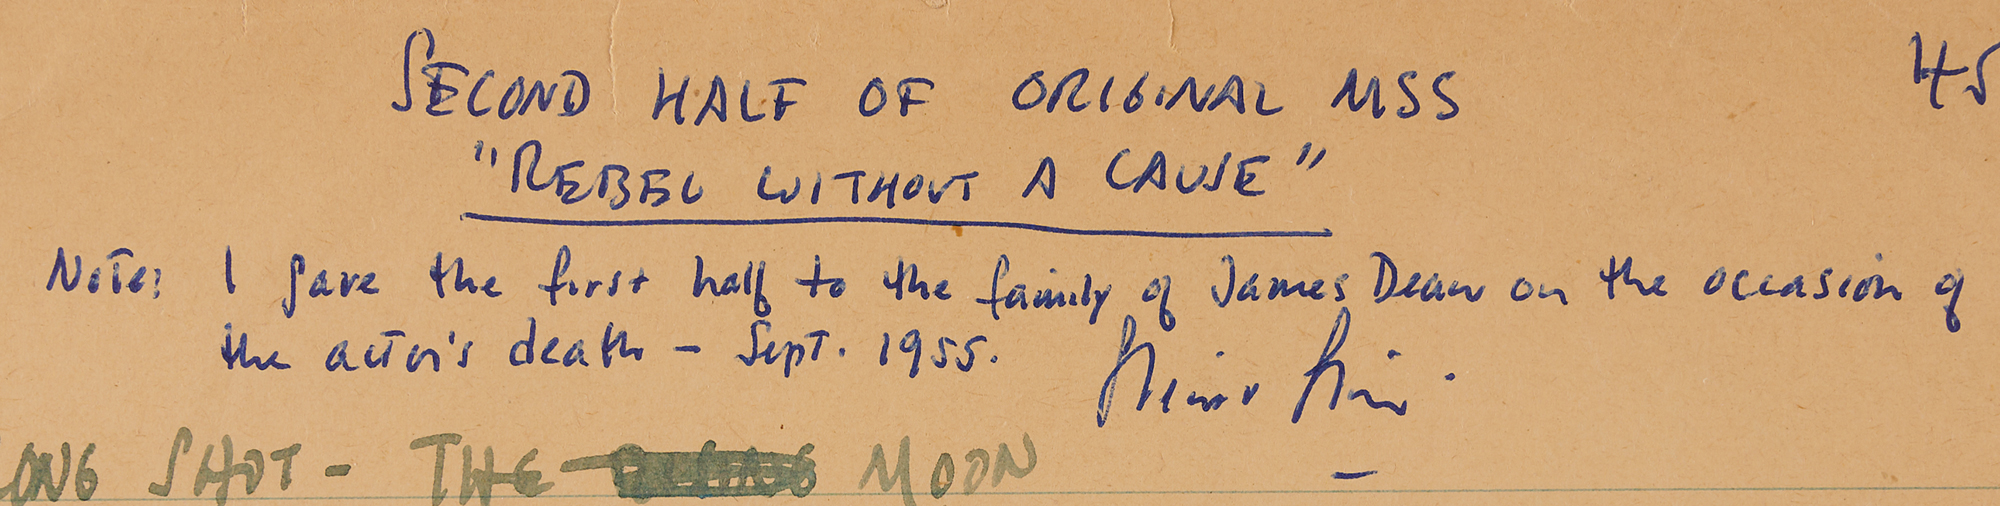 SECOND HALF OF ORIGINAL MSS 45
"REBEL WITHOUT A CAUSE"
Note: I gave the first half to the family of James Dean on the occasion of
the actor's death – Sept. 1955.
ONG SHOT - THE MOON